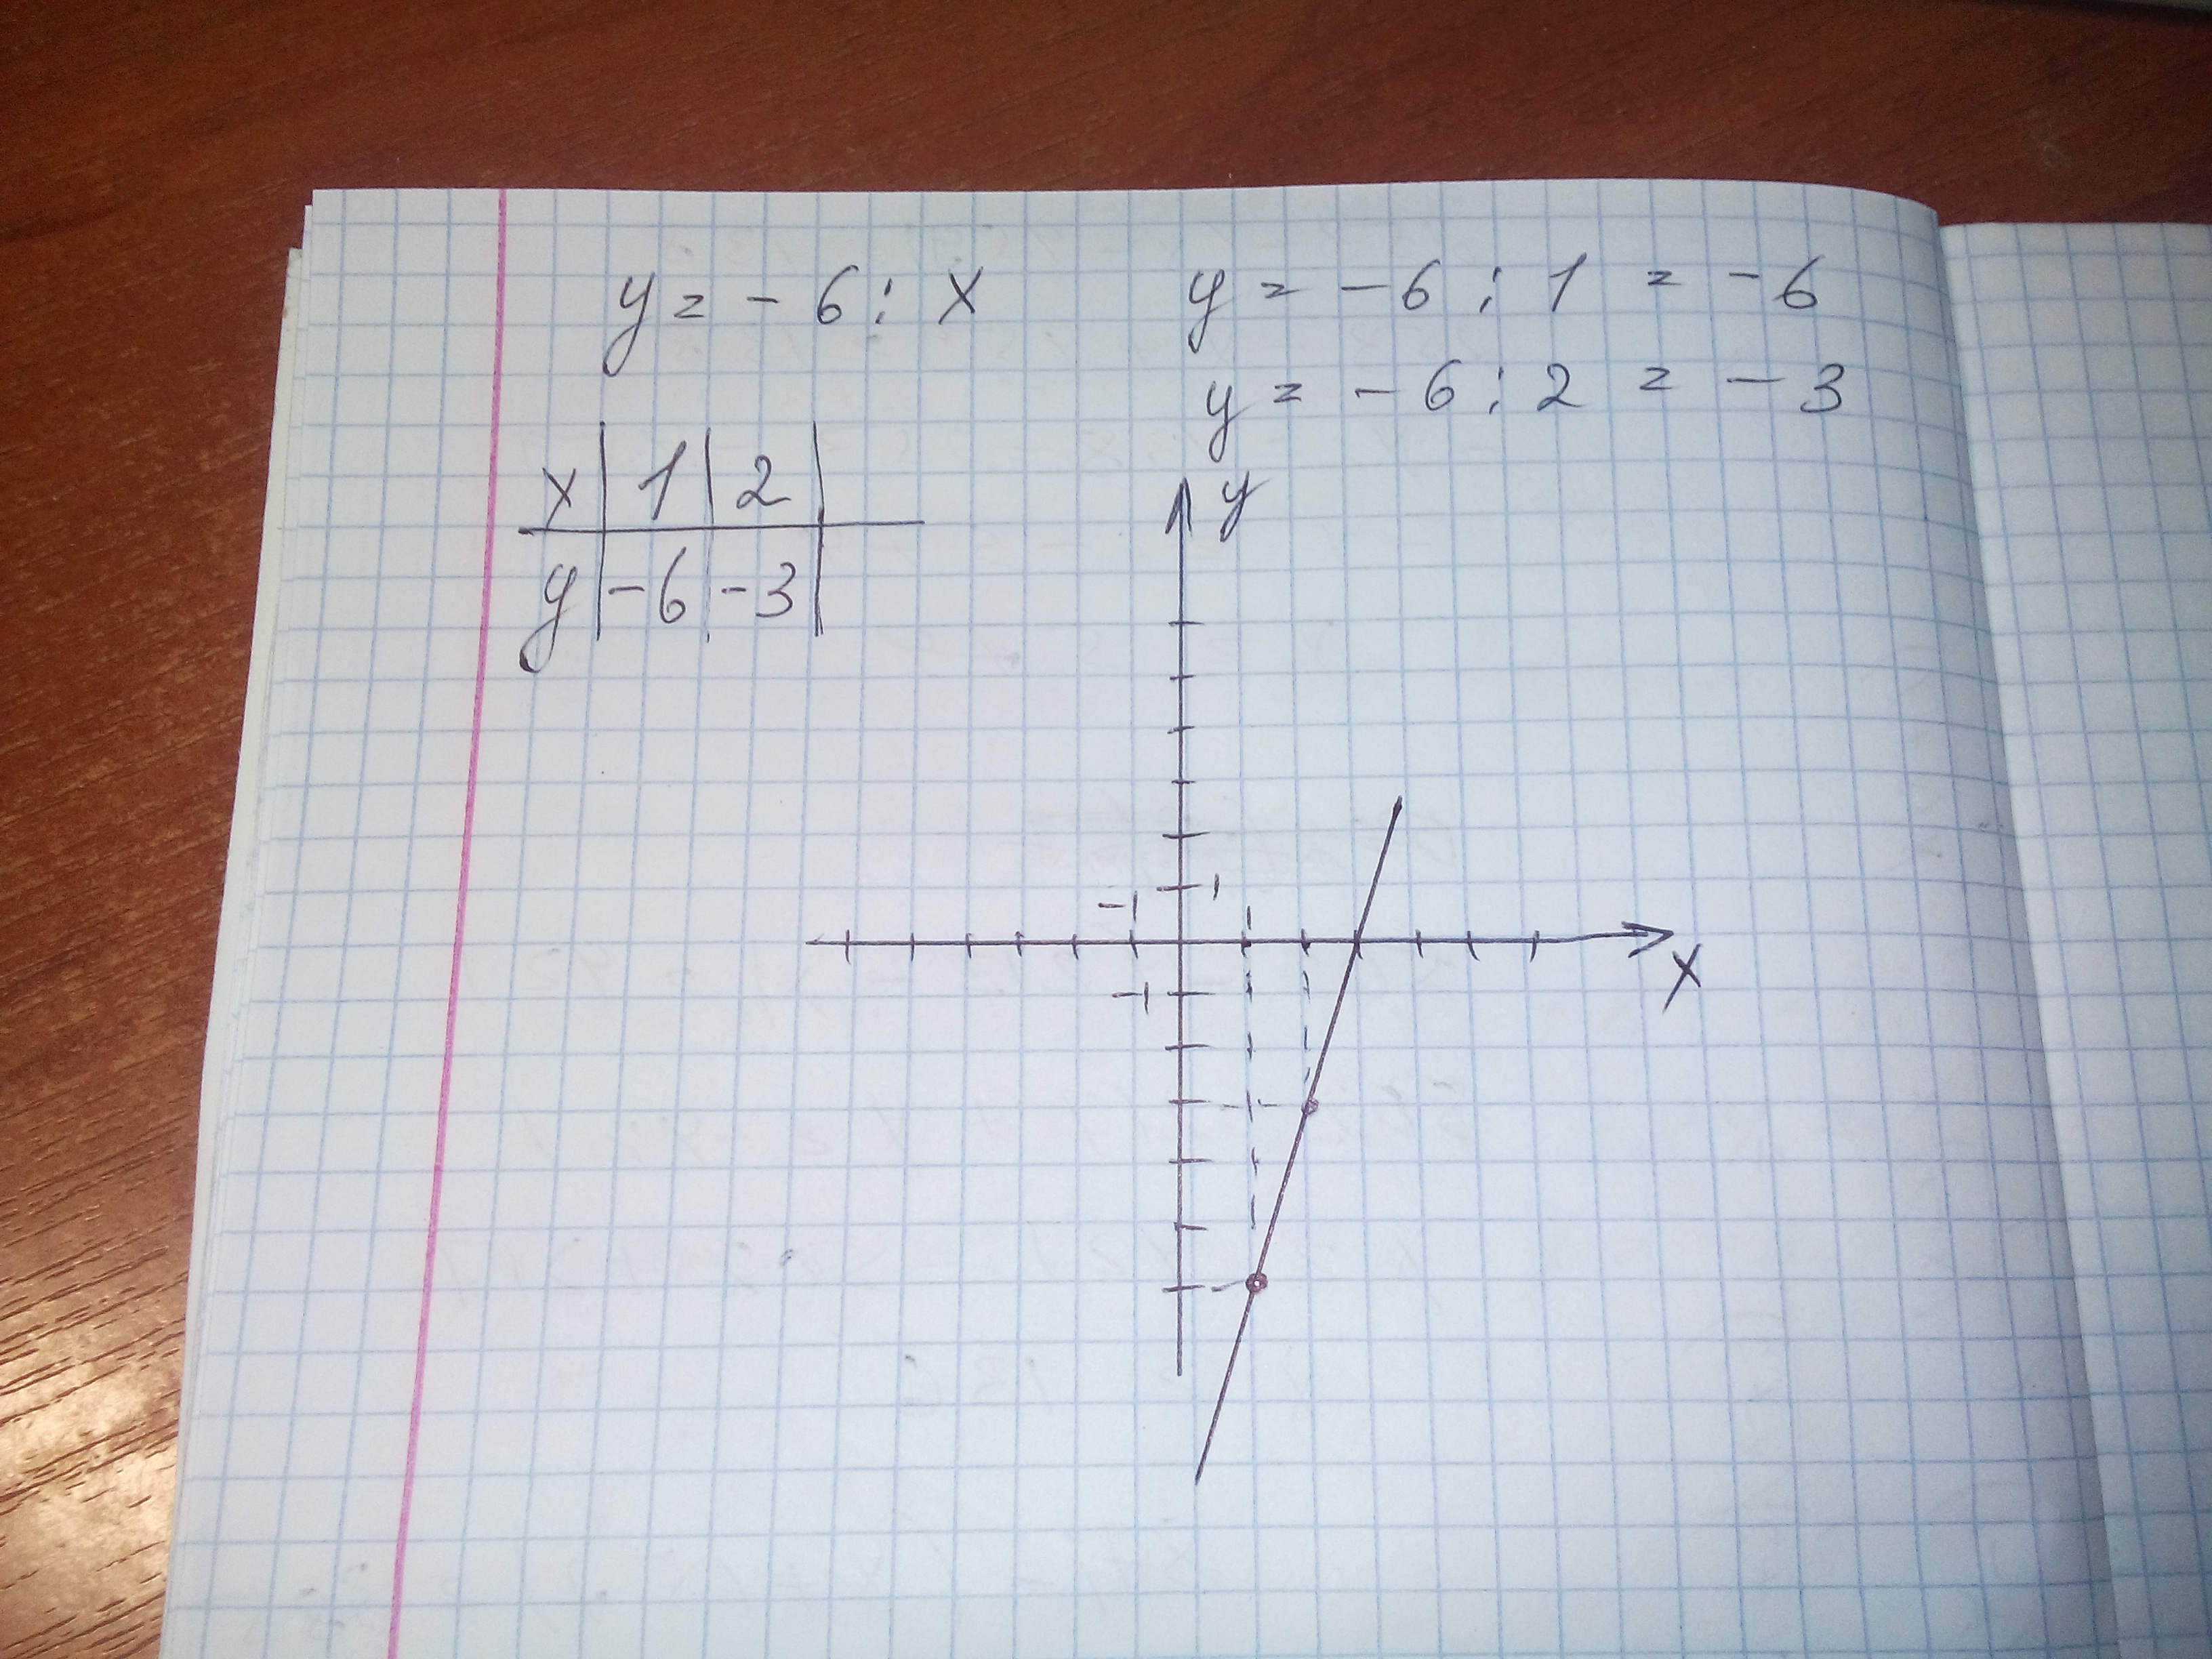 y = - 6 : x
y = - 6 : 1 = - 6
y = - 6 : 2 = - 3
x 1 2
y -6 -3
y
-1 1 1
x
-1